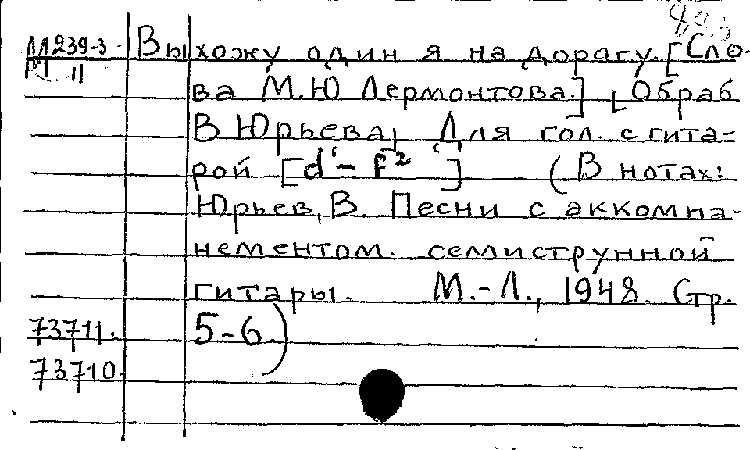 М239-3 Выхожу один я на дорогу. [Сло-
М 11 ва М.Ю Лермонтова.] [Обраб
В Юрьева, Для гол. с гита-
рой [d'- f²] (В нотах:
Юрьев, В. Песни с аккомпа-
нементом. семиструнной
гитары. М.-Л., 1948. Стр.
73711. 5-6)
73710.